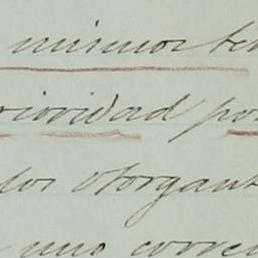 mismos te
rioridad po
los otorgant
uno corre